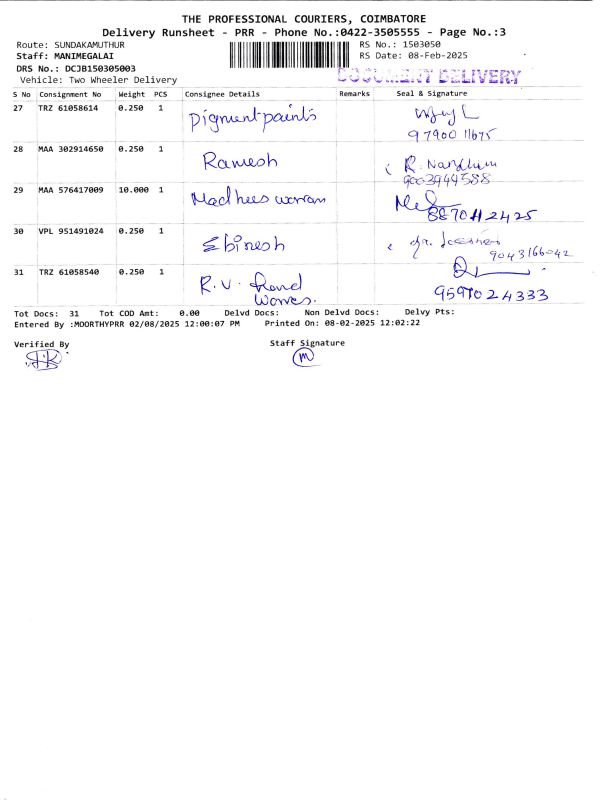 THE PROFESSIONAL COURIERS, COIMBATORE
Delivery Runsheet - PRR - Phone No.:0422-3505555 - Page No.:3
Route: SUNDAKAMUTHUR RS No.: 1503050
Staff: MANIMEGALAI RS Date: 08-Feb-2025
DRS No.: DCJB150305003
Vehicle: Two Wheeler Delivery DOCUMENT DELIVERY
S No Consignment No Weight PCS Consignee Details Remarks Seal & Signature
27 TRZ 61058614 0.250 1 Pigment paints
97900 11675
28 MAA 302914650 0.250 1 Ramesh R. Nandhum
9003944588
29 MAA 576417009 10.000 1 Madheeswaran
8870112425
30 VPL 951491024 0.250 1 Ebinesh
9043166042
31 TRZ 61058540 0.250 1 R.V. Hond
Worres.
9597024333
Tot Docs: 31 Tot COD Amt: 0.00 Delvd Docs: Non Delvd Docs: Delvy Pts:
Entered By :MOORTHYPRR 02/08/2025 12:00:07 PM Printed On: 08-02-2025 12:02:22
Verified By Staff Signature
M